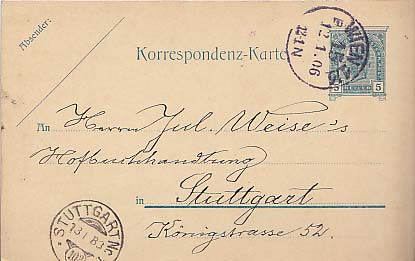 Absender:
Korrespondenz-Karte
WIEN
12.1.06
5 HELLER 5
An Herrn Jul. Weise's
Hofbuchhandlung
in Stuttgart
Königstrasse 52.
STUTTGART No
13 I